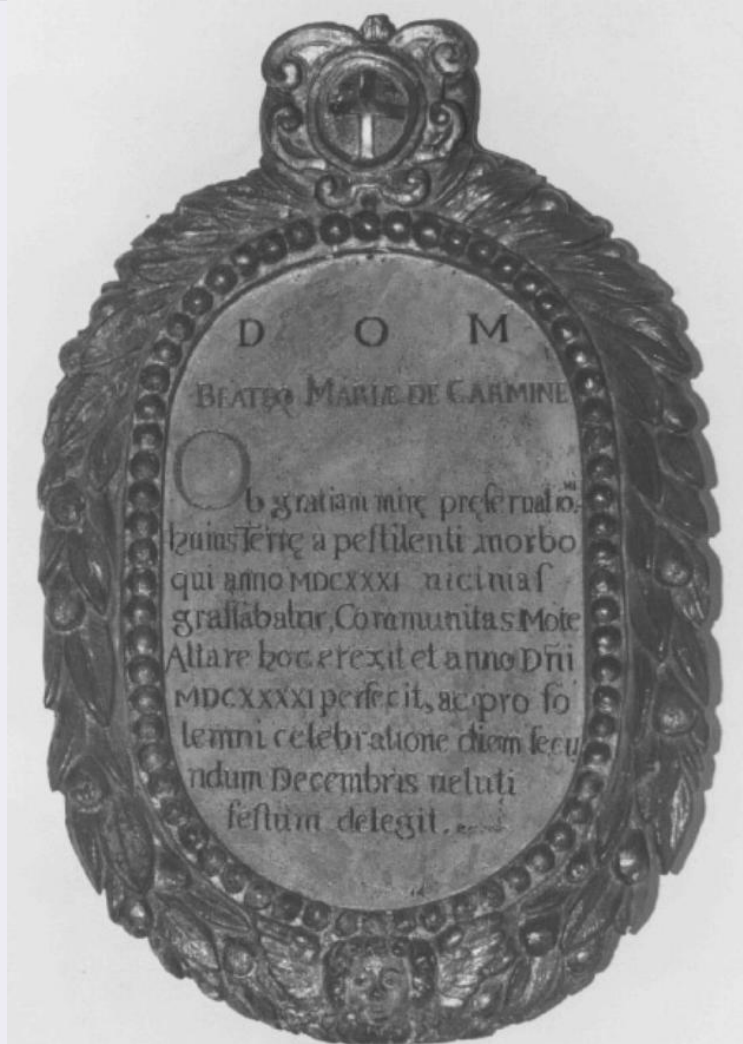 D O M
BEATĘQ MARIÆ DE CARMINE
Ob gratiam mirę pręseruatio.
huius Terrę a pestilenti morbo
qui anno MDCXXXI uicinias
grassabatur, Communitas Mote
Altare hoc erexit et anno Dñi
MDCXXXXI perfecit, ac pro so
lemni celebratione diem secu
ndum Decembris ueluti
festum delegit.